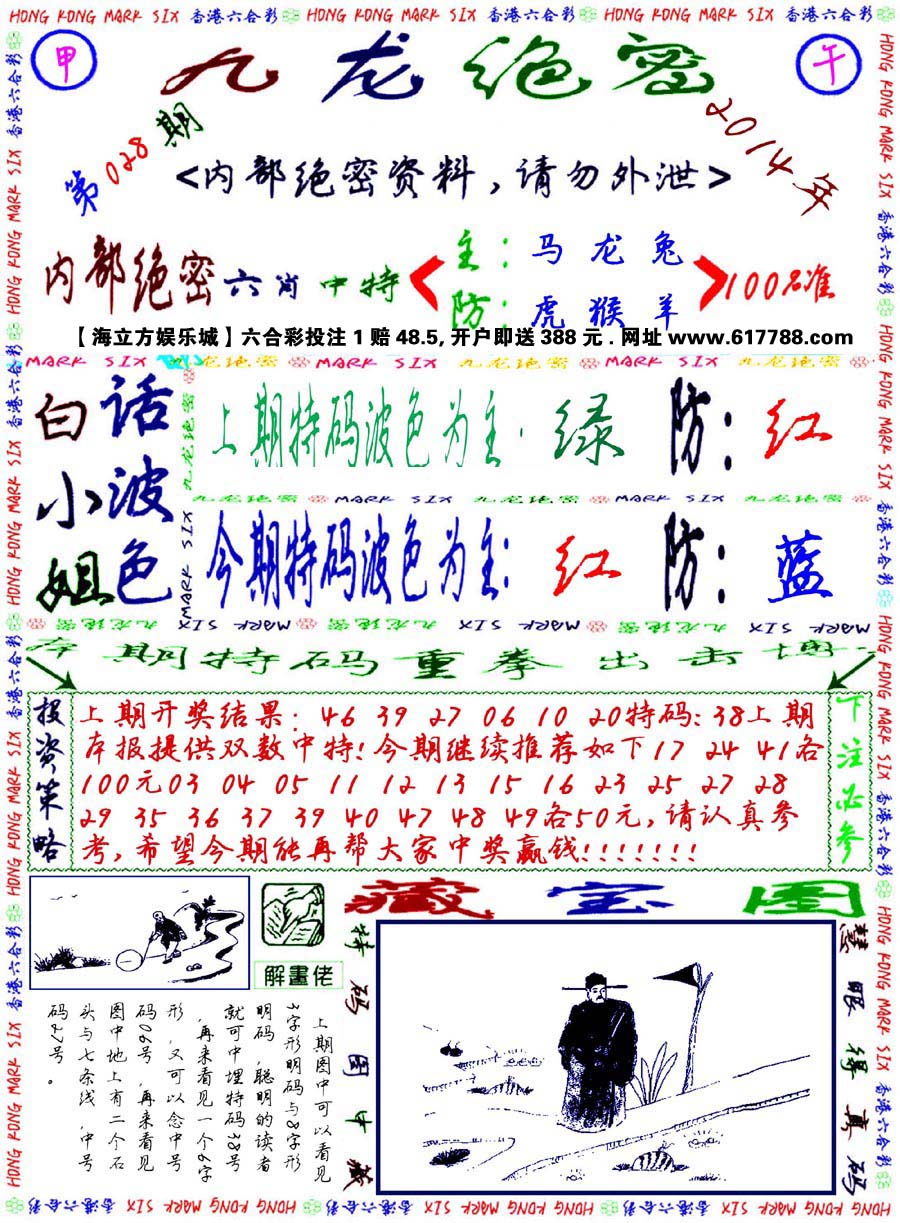 HONG KONG MARK SIX 香港六合彩 HONG KONG MARK SIX 香港六合彩 HONG KONG MARK SIX 香港六合彩
甲 九龙绝密 午
第028期
2014年
<内部绝密资料,请勿外泄>
内部绝密六肖中特
主:马龙兔
防:虎猴羊
100%准
【海立方娱乐城】六合彩投注1赔48.5,开户即送388元.网址www.617788.com
MARK SIX 九龙绝密 MARK SIX 九龙绝密 MARK SIX 九龙绝密
白话
小波
姐色
上期特码波色为主:绿 防:红
九龙绝密 MARK SIX 九龙绝密 MARK SIX 九龙绝密
今期特码波色为主:红 防:蓝
MARK SIX 九龙绝密 MARK SIX 九龙绝密 MARK SIX 九龙绝密
本期特码重拳出击博
投资策略
上期开奖结果:46 39 27 06 10 20特码:38上期
本报提供双数中特!今期继续推荐如下17 24 41各
100元03 04 05 11 12 13 15 16 23 25 27 28
29 35 36 37 39 40 47 48 49各50元,请认真参
考,希望今期能再帮大家中奖赢钱!!!!!!!
下注必参
藏宝图
解畫佬
特码图中藏
慧眼得真码
上期图中可以看见
3字形明码与8字形
明码,聪明的读者
就可中埋特码38号
,再来看见一个6字
形,又可以念中号
码06号,再来看见
图中地上有二个石
头与七条线,中号
码27号。
HONG KONG MARK SIX 香港六合彩 HONG KONG MARK SIX 香港六合彩 HONG KONG MARK SIX 香港六合彩